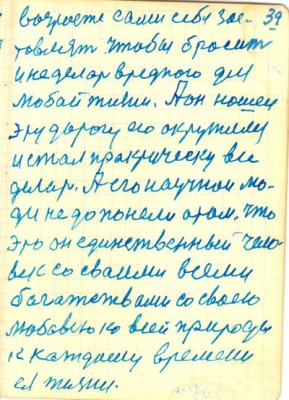 39
возрасте сами себя зас-
товлят чтобы бросит
и не делал вредного для
любай жизни. А он нашел
эту дорогу его окружили
и стал практическу все
делал. А его научнои лю-
ди не допонели этом. что
это он единственный чело-
век со сваими всеми
багатствами со своею
любовью ко всей природы
к каждому времени
ея жизни.